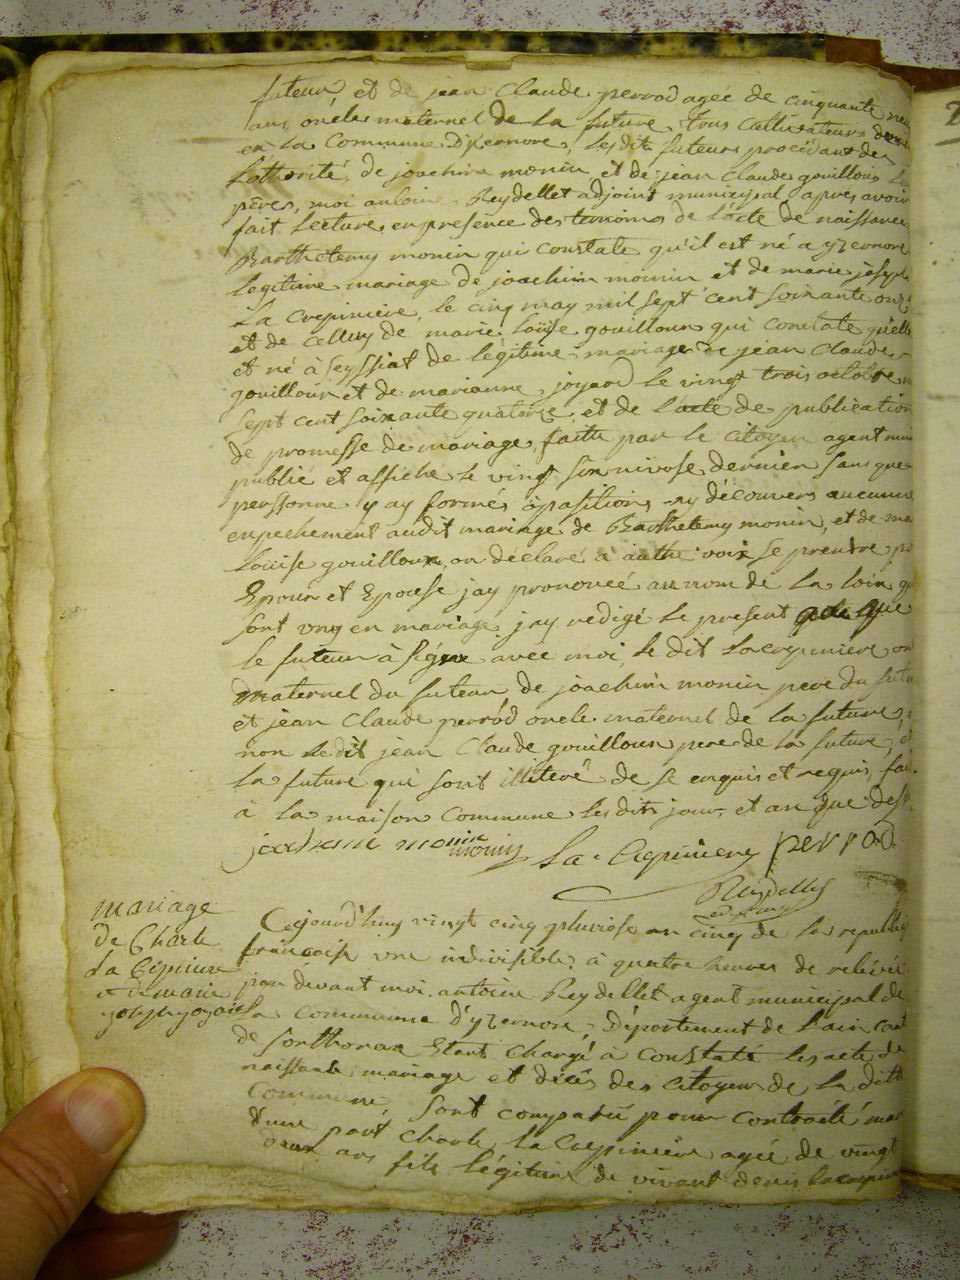 futeur et de jean Claude perrod agée de cinquante neu
ans oncle maternel de la future, tous cultivateurs
en la Commune Dyzernore, Lesdits futeurs procédant de
Lothorité de joachim monin et de jean Claude gouilloux
pères, moi antoine Reydellet adjoint municipal apres avoir
fait Lecture en presence des temoins de L'acte de naissance
Barthelemy monin qui constate qu'il est né a yzernore
legitime mariage de joachim monnin et de marie joseph
La Crepiniere, le cinq may mil sept cent soixante onze
et de Celluy de marie Loüise gouilloux qui constate qu'elle
et né à Seyssiat de legitime mariage de jean Claude
gouilloux et de marianne joyard le vingt trois octobre
sept cent soixante quatorze et de L'acte de publication
de promesse de mariage faitte par le citoyen agent mun
publié et affiché le vingt six nivose dernier sans que
perssonne y ay formés opasition ny découvers aucunne
enpechement audit mariage de Barthelemy monin, et de ma
Loüise gouilloux on déclaré à authe voix se prendre p
Epoux et Epouse jay prononcé au nom de la loix
sont uny en mariage jay redigé le present que
le futeur à signe avec moi, le dit Lacrepiniere on
maternel du futeur de joachim monin pere du futu
et jean Claude perrod oncle maternel de la future,
non ledit jean Claude gouilloux pere de la future et
la future qui sont illiteré de se enquis et requis, fai
à la maison Commune lesdits jour et an que dess
joachim monin monin La Crepiniere perrod
Reydellet
adjoint
mariage
de Charle
La Crepiniere
et de marie
joseph joyard
Cejourd'huy vingt cinq pluviose an cinq de la republiq
francoise une indivisible à quatre heures de relévée
par devant moi antoine Reydellet agent municipal de
la commune d'yzernore, Département de l'ain cant
de Sonthonax Etant Chargé à constaté les acte de
naissante mariage et décés des citoyens de la ditte
Commune, sont comparu pour contracté mar
d'une part Charle la Crepiniere agée de vingt
deux ans fils légitime de vivant denis lacrepin